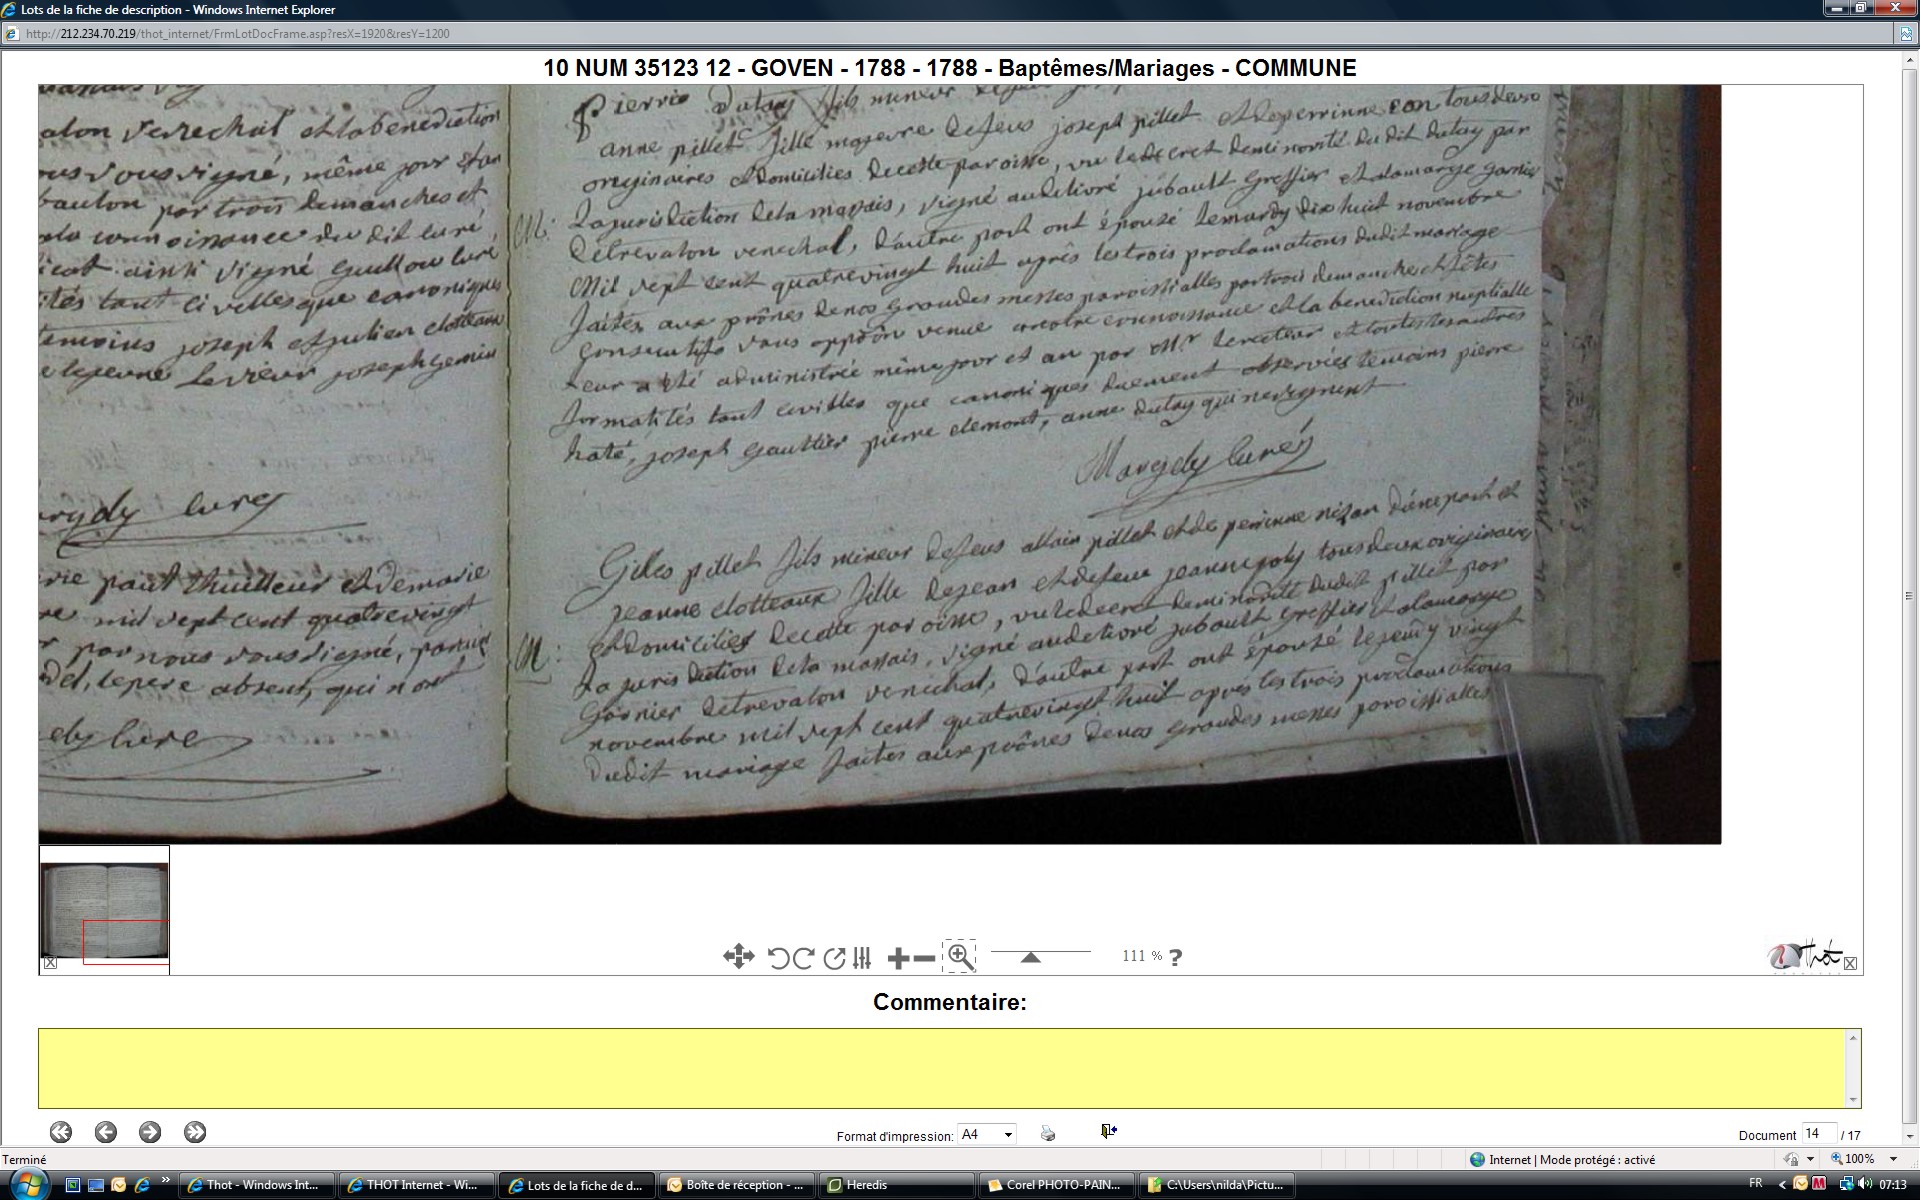 Lots de la fiche de description - Windows Internet Explorer
http://212.234.70.219/thot_internet/FrmLotDocFrame.asp?resX=1920&resY=1200
10 NUM 35123 12 - GOVEN - 1788 - 1788 - Baptêmes/Mariages - COMMUNE
venechal et la benediction
vous vousvigné, même jour et an
par trois demanches et
connoissance du dit curé,
ainsi vigné guillou curé
tant civilles que canoniques
temoins joseph et julien clotteaux
le jeune le vieux joseph
curé
et de marie
mil vept cent quatrevingt
par nous vous vigné,
le pere absent, qui n'ont
curé
Pierre dutay fils mineur
anne pillet fille majeure de feus joseph pillet et de perrinne tous deux
originaires et domiciliés de cette paroisse, vu le decret de minorité du dit dutay par
la jurisdiction de la massais, vigné au delivré jubault greffier et alamarge garnier
M:
detrevalon venechal, d'autre part ont épouzé le mardy dix huit novembre
mil vept cent quatrevingt huit après les trois proclamations dudit mariage
faites aux prônes de nos grandes messes paroissialles par trois demanche et fêtes
consecutifs vans oppôon venue a notre connoissance et la benediction nuptialle
leur a été administrée même jour et an par Mr le recteur et toutes les autres
formalités tant civilles que canoniques duement observées temoins pierre
haté, joseph gaultier pierre clemont, anne dutay qui ne vignent
Margely curé
Giles pillet fils mineur de feus allain pillet et de perrinne nizan d'une part et
jeanne clotteaux fille de jean et de feue jeanne joly tous deux originaire
et domiciliés de cette paroisse, vu le decret de minorité dudit pillet par
M:
la jurisdiction de la massais, vigné au delivré jubault greffier et alamarge
garnier detrevalon venechal, d'autre part ont épouzé le jeudy vingt
novembre mil vept cent quatrevingt huit après les trois proclamations
dudit mariage faites aux prônes de nos grandes messes paroissialles
111 % ?
Thot
Commentaire:
Format d'impression: A4
Document 14 / 17
Terminé
Internet | Mode protégé : activé
100%
Thot - Windows Int...
THOT Internet - Wi...
Lots de la fiche de d...
Boîte de réception - ...
Heredis
Corel PHOTO-PAIN...
C:\Users\nilda\Pictu...
FR
07:13